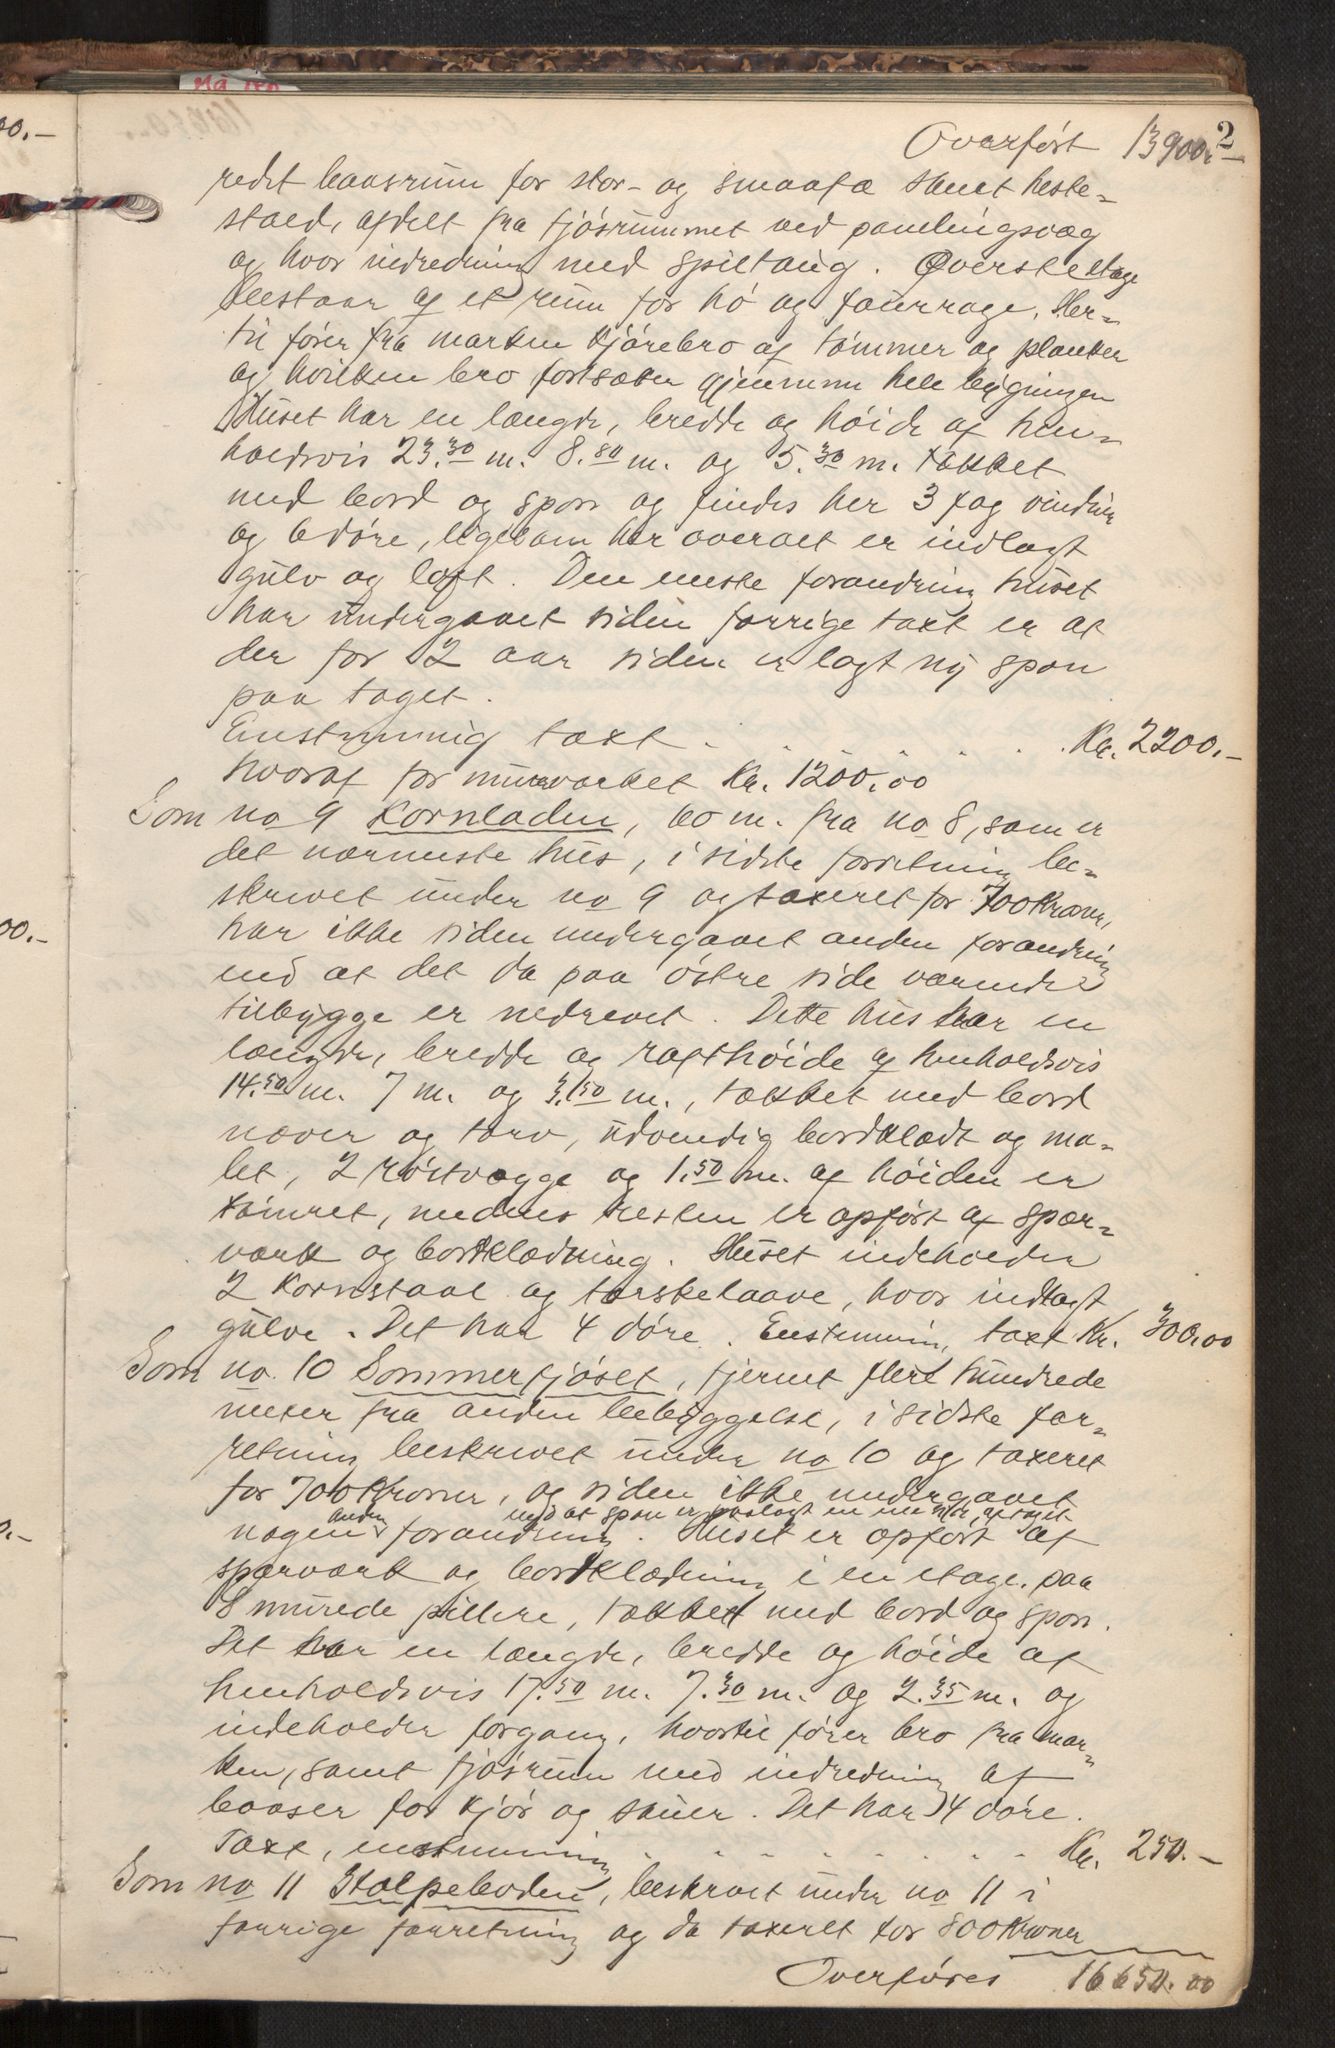 2
Overført 13900.-
redet baasrum for stor- og smaafæ samt heste-
stald, afdelt fra fjøsrummet ved panelingsvæg
og hvor indredning med spiltaug. Øverste etage
bestaar af et rum for hø og fourrage. Her-
til fører fra marken kjørebro af tømmer og planker
og hvilken bro fortsætter gjennem hele bygningen
Huset har en længde, bredde og høide af hen-
holdsvis 23.30 m. 8.80 m. og 5.30 m. tækket
med bord og spon og findes her 3 fag vinduer
og 6 døre, ligesom her overalt er indlagt
gulv og loft. Den eneste forandring huset
har undergaaet siden forrige taxt er at
der for 2 aar siden er lagt ny spon
paa taget.
Enstemmig taxt . . . . . . . Kr. 2200.-
hvoraf for murværket Kr. 1200.00
Som no 9 Kornladen, 60 m. fra no 8, som er
det nærmeste hus, i sidste forretning be-
skrevet under no 9 og taxeret for 700 Kroner,
har ikke siden undergaaet anden forandring
end at det da paa østre side værende
tilbygge er nedrevet. Dette hus har en
længde, bredde og rafthøide af henholdsvis
14.50 m. 7 m. og 3.50 m., tækket med bord
næver og torv, udvendig bordklædt og ma-
let, 2 røstvægge og 1.50 m. af høiden er
tømret, medens resten er opført af spær-
værk og bordklædning. Huset indeholder
2 kornstaal og tærskelaave, hvor indlagt
gulve. Det har 4 døre. Enstemmig taxt Kr. 300.00
Som no. 10 Sommerfjøset, fjernet flere hundrede
meter fra anden bebyggelse, i sidste for-
retning beskrevet under no 10 og taxeret
for 700 Kroner, og siden ikke undergaaet
anden end at spon er paalagt en side af taget
nogen forandring. Huset er opført af
spærværk og bordklædning i en etage paa
8 murede pillere, tækket med bord og spon.
Det har en længde, bredde og høide af
henholdsvis 17.50 m. 7.30 m. og 2.35 m. og
indeholder forgang, hvortil fører bro fra mar-
ken, samt fjøsrum med indredning af
baaser for kjør og sauer. Det har 4 døre.
Taxt, enstemmig . . . . . . . Kr. 250.-
Som no 11 Stolpeboden, beskrevet under no 11 i
forrige forretning og da taxeret for 800 Kroner
Overføres 16650.00